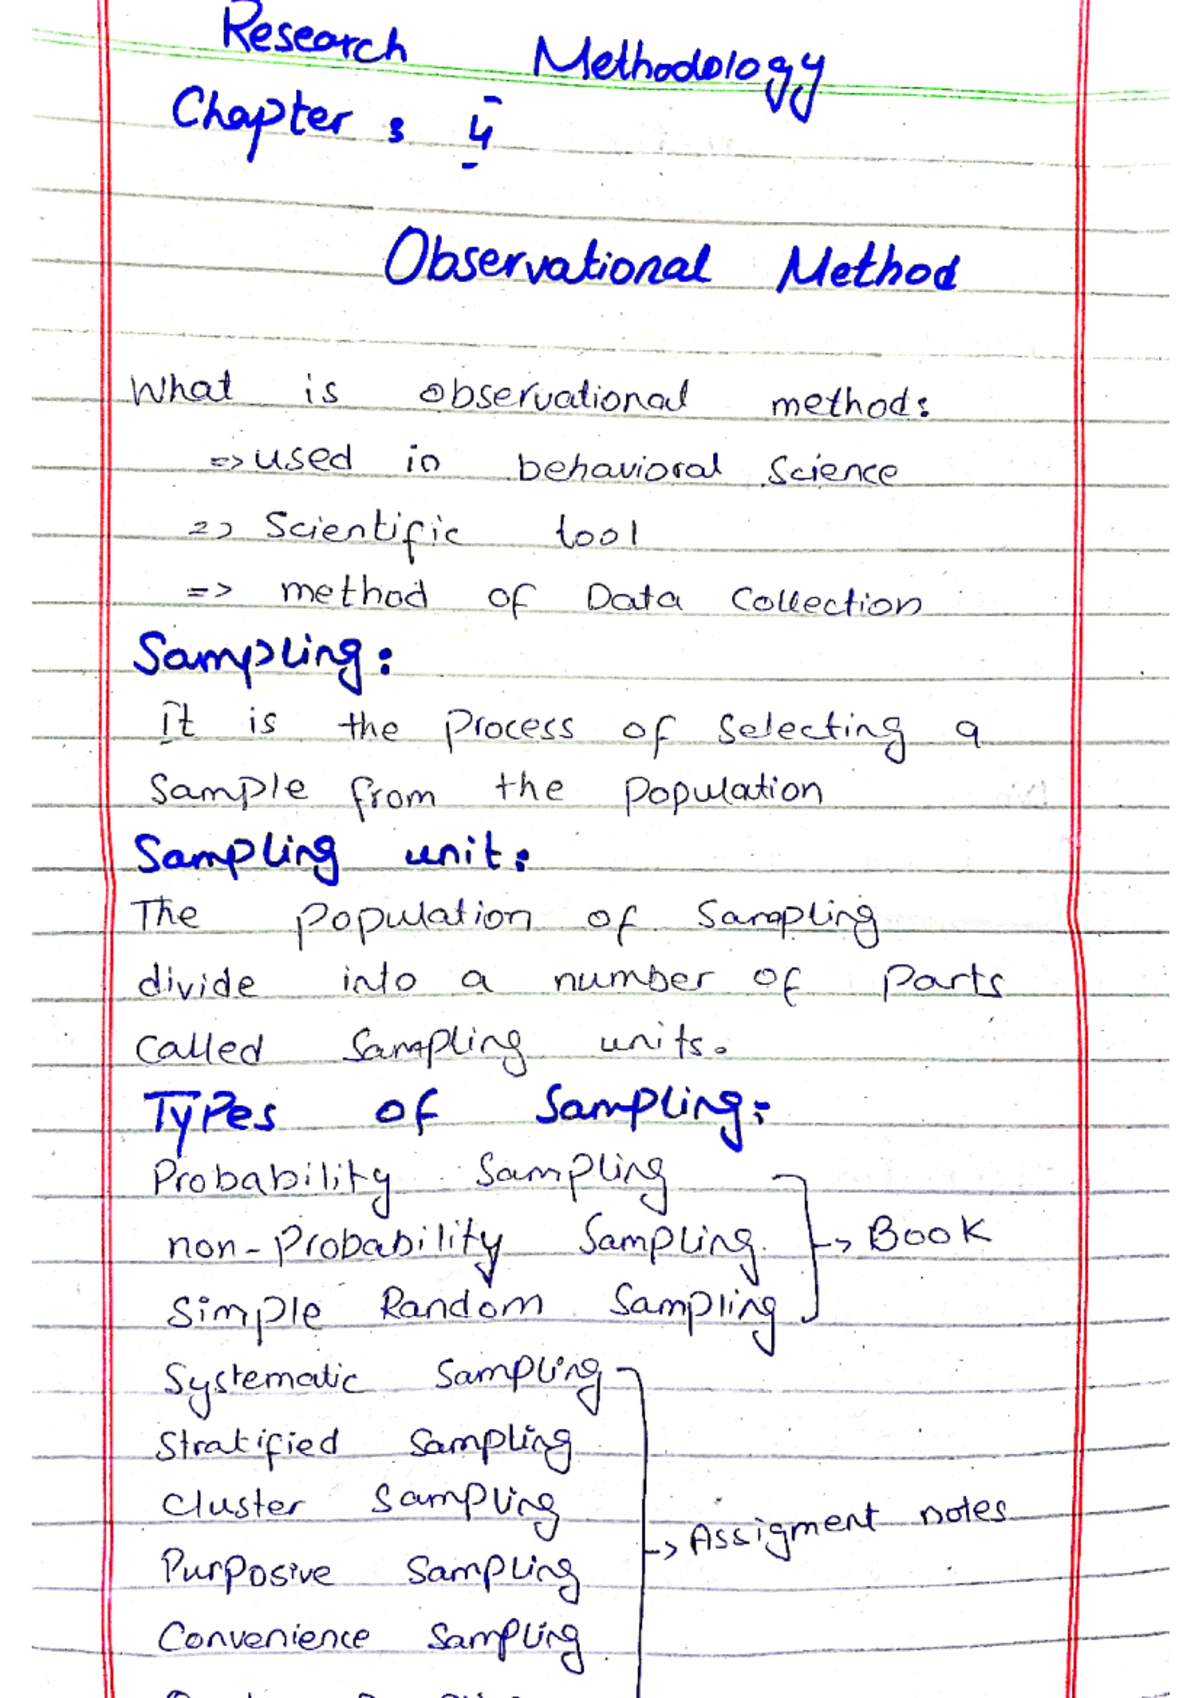 Research Methodology
Chapter : 4
Observational Method
What is observational method:
=> used in behavioral Science
=> Scientific tool
=> method of Data Collection
Sampling:
It is the Process of Selecting a
Sample from the Population
Sampling unit:
The Population of Sampling
divide into a number of Parts
Called Sampling units.
Types of Sampling:
Probability Sampling
non-Probability Sampling -> Book
Simple Random Sampling
Systematic Sampling
Stratified Sampling
Cluster Sampling
-> Assigment notes
Purposive Sampling
Convenience Sampling